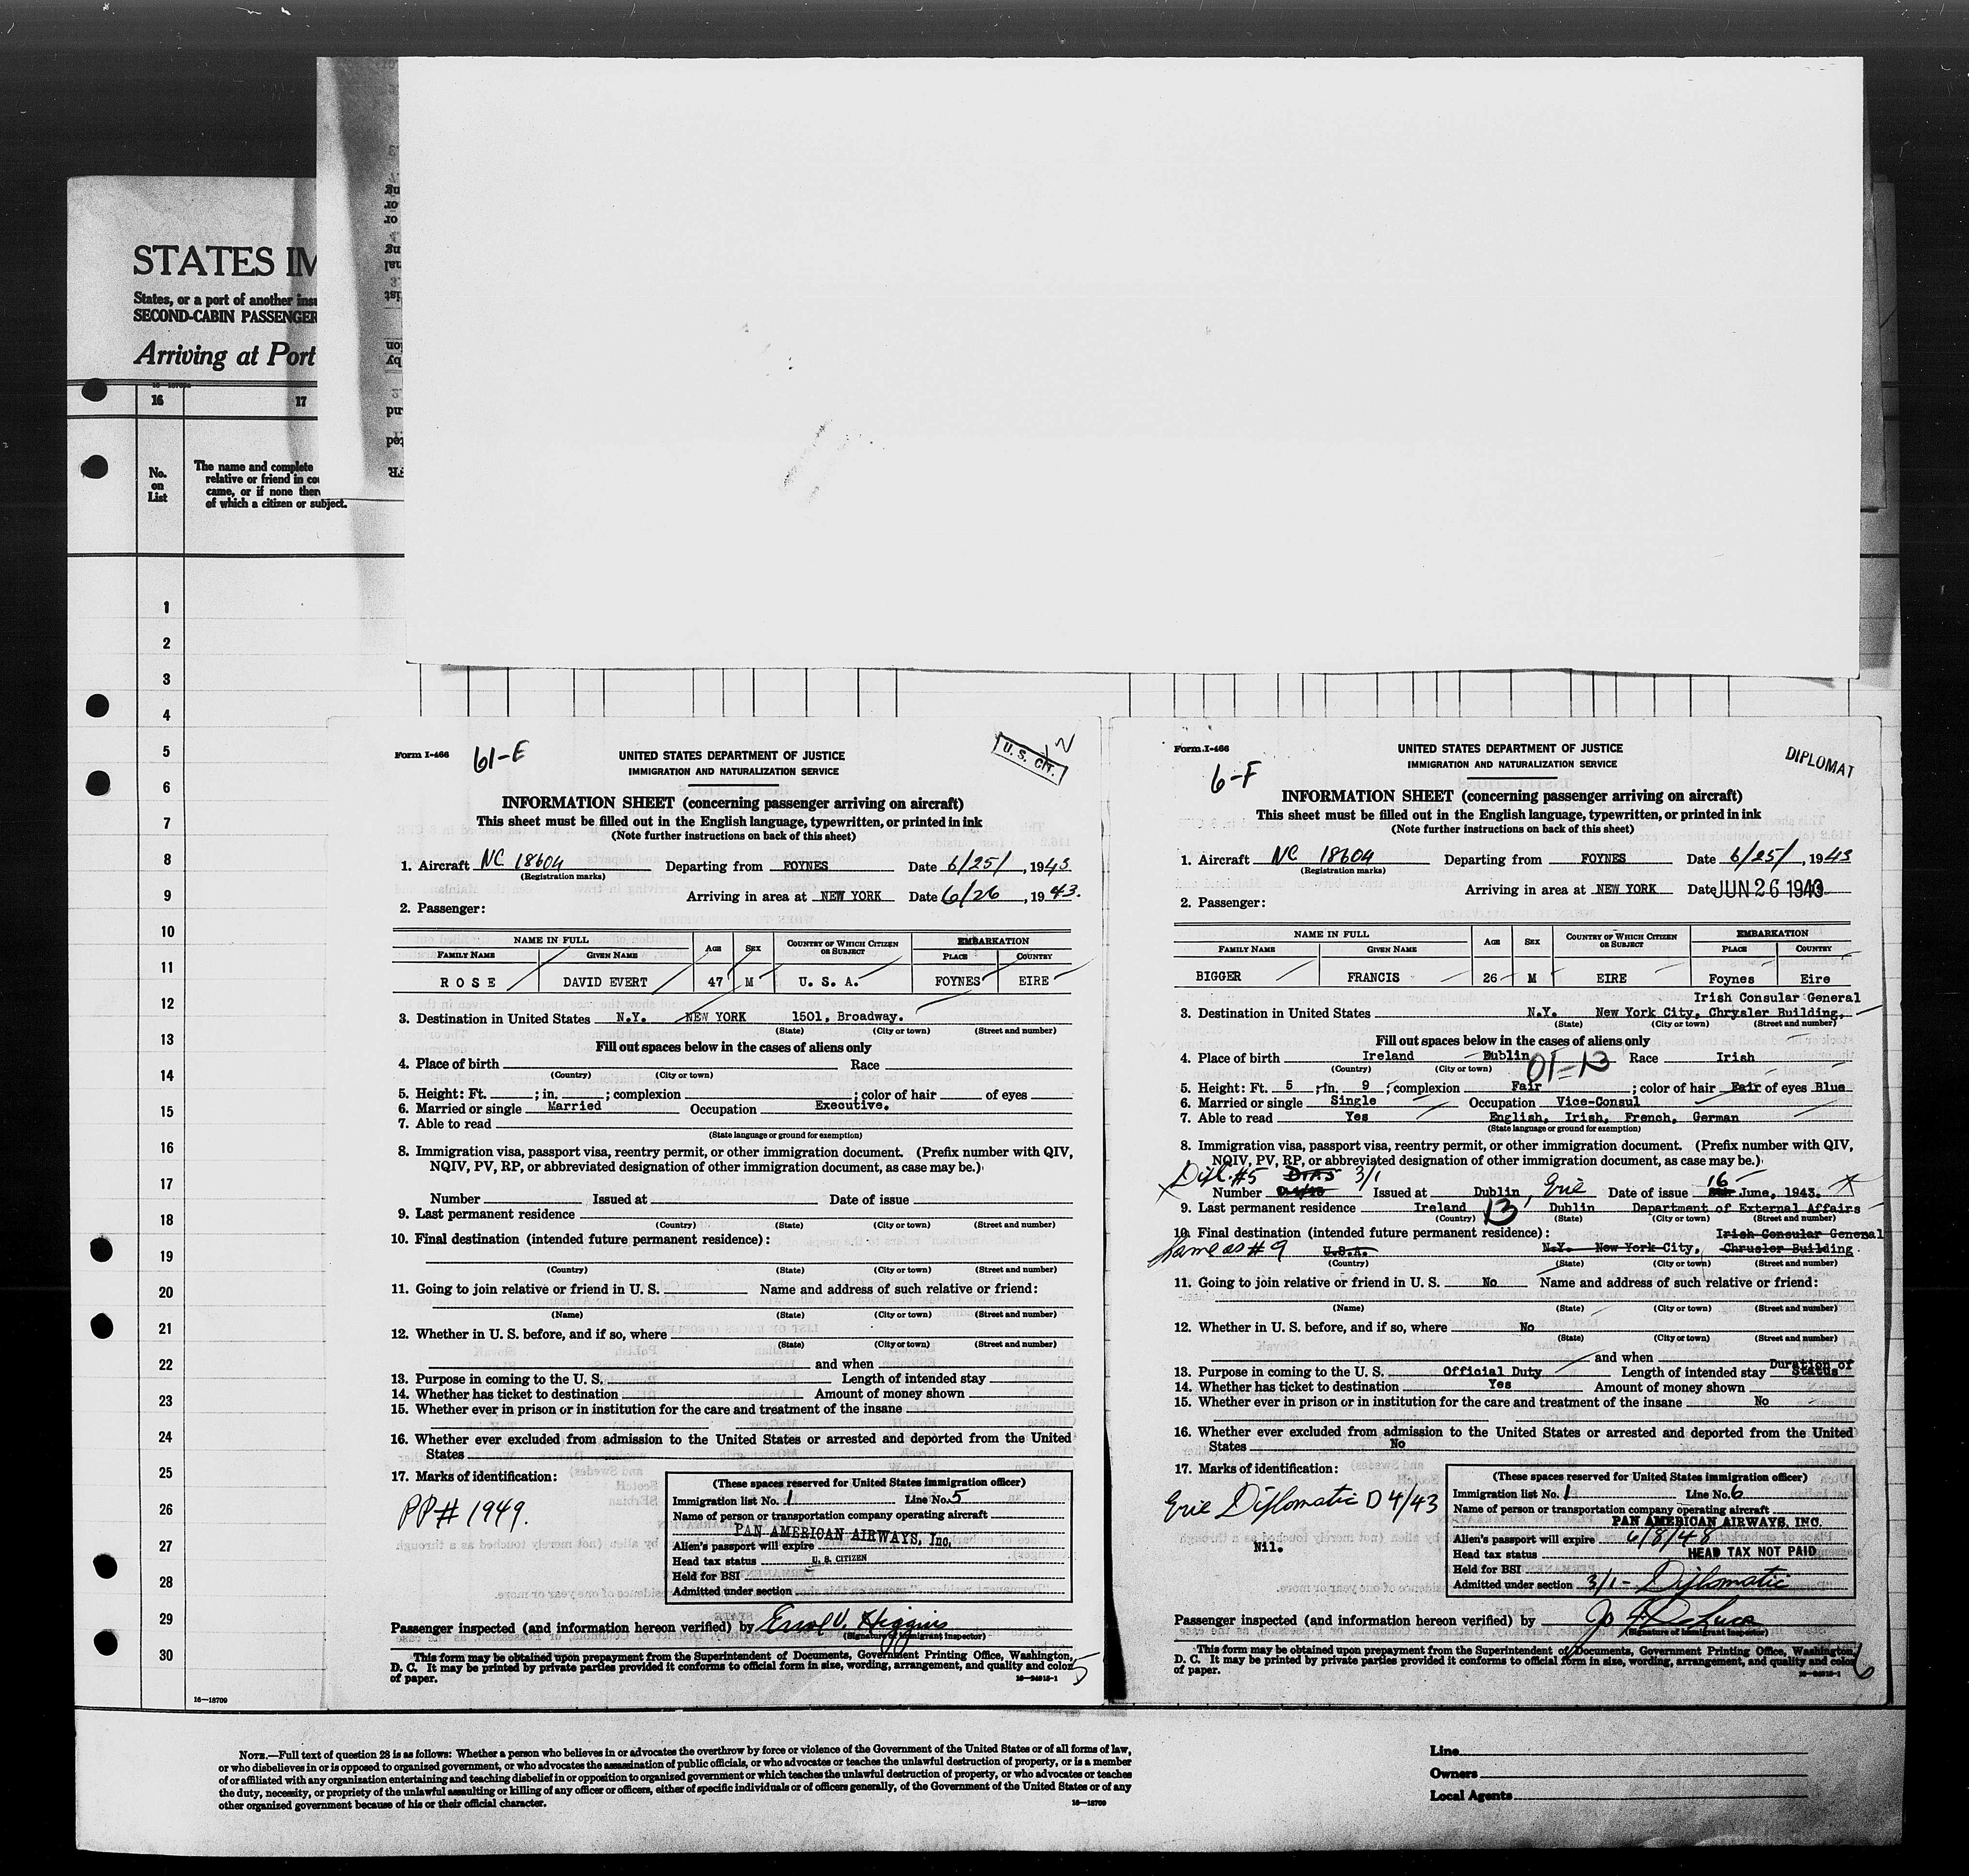 STATES IM
States, or a port of another insu
SECOND-CABIN PASSENGER
Arriving at Port
16 17
No.
on
List
The name and complete
relative or friend in cou
came, or if none there
of which a citizen or subject.
1
2
3
4
5
6
7
8
9
10
11
12
13
14
15
16
17
18
19
20
21
22
23
24
25
26
27
28
29
30
16—18709
Form I-466 61-E
U. S. CIT.
UNITED STATES DEPARTMENT OF JUSTICE
IMMIGRATION AND NATURALIZATION SERVICE
INFORMATION SHEET (concerning passenger arriving on aircraft)
This sheet must be filled out in the English language, typewritten, or printed in ink
(Note further instructions on back of this sheet)
1. Aircraft NC 18604 Departing from FOYNES Date 6/25/, 1943
(Registration marks)
Arriving in area at NEW YORK Date 6/26, 1943.
2. Passenger:
NAME IN FULL AGE SEX COUNTRY OF WHICH CITIZEN OR SUBJECT EMBARKATION
FAMILY NAME GIVEN NAME PLACE COUNTRY
ROSE DAVID EVERT 47 M U. S. A. FOYNES EIRE
3. Destination in United States N.Y. NEW YORK 1501, Broadway.
(State) (City or town) (Street and number)
Fill out spaces below in the cases of aliens only
4. Place of birth Race
(Country) (City or town)
5. Height: Ft. ; in. ; complexion ; color of hair of eyes
6. Married or single Married Occupation Executive.
7. Able to read
(State language or ground for exemption)
8. Immigration visa, passport visa, reentry permit, or other immigration document. (Prefix number with QIV,
NQIV, PV, RP, or abbreviated designation of other immigration document, as case may be.)
Number Issued at Date of issue
9. Last permanent residence
(Country) (State) (City or town) (Street and number)
10. Final destination (intended future permanent residence):
(Country) (State) (City or town) (Street and number)
11. Going to join relative or friend in U. S. Name and address of such relative or friend:
(Name) (State) (City or town) (Street and number)
12. Whether in U. S. before, and if so, where
(State) (City or town) (Street and number)
and when
13. Purpose in coming to the U. S. Length of intended stay
14. Whether has ticket to destination Amount of money shown
15. Whether ever in prison or in institution for the care and treatment of the insane
16. Whether ever excluded from admission to the United States or arrested and deported from the United
States
17. Marks of identification:
PP# 1949.
(These spaces reserved for United States immigration officer)
Immigration list No. 1 Line No. 5
Name of person or transportation company operating aircraft
PAN AMERICAN AIRWAYS, Inc.
Alien's passport will expire
Head tax status U. S. CITIZEN
Held for BSI
Admitted under section
Passenger inspected (and information hereon verified) by Errol V. Higgins
(Signature of immigrant inspector)
This form may be obtained upon prepayment from the Superintendent of Documents, Government Printing Office, Washington,
D. C. It may be printed by private parties provided it conforms to official form in size, wording, arrangement, and quality and color
of paper. 5
Form I-466 6-F
DIPLOMAT
UNITED STATES DEPARTMENT OF JUSTICE
IMMIGRATION AND NATURALIZATION SERVICE
INFORMATION SHEET (concerning passenger arriving on aircraft)
This sheet must be filled out in the English language, typewritten, or printed in ink
(Note further instructions on back of this sheet)
1. Aircraft NC 18604 Departing from FOYNES Date 6/25/, 1943
(Registration marks)
Arriving in area at NEW YORK Date JUN 26 1943
2. Passenger:
NAME IN FULL AGE SEX COUNTRY OF WHICH CITIZEN OR SUBJECT EMBARKATION
FAMILY NAME GIVEN NAME PLACE COUNTRY
BIGGER FRANCIS 26 M EIRE Foynes Eire
Irish Consular General
3. Destination in United States N.Y. New York City, Chrysler Building,
(State) (City or town) (Street and number)
Fill out spaces below in the cases of aliens only
4. Place of birth Ireland Dublin Race Irish
(Country) (City or town) 01-13
5. Height: Ft. 5 ; in. 9 ; complexion Fair ; color of hair Fair of eyes Blue
6. Married or single Single Occupation Vice-Consul
7. Able to read Yes English, Irish, French, German
(State language or ground for exemption)
8. Immigration visa, passport visa, reentry permit, or other immigration document. (Prefix number with QIV,
NQIV, PV, RP, or abbreviated designation of other immigration document, as case may be.)
Dipl. #5 3/1 16
Number Issued at Dublin, Eire Date of issue June, 1943.
9. Last permanent residence Ireland 13 Dublin Department of External Affairs
(Country) (State) (City or town) (Street and number)
10. Final destination (intended future permanent residence): Irish Consular General
Same as #9 U.S.A. N.Y. New York City, Chrusler Building
(Country) (State) (City or town) (Street and number)
11. Going to join relative or friend in U. S. No Name and address of such relative or friend:
(Name) (State) (City or town) (Street and number)
12. Whether in U. S. before, and if so, where No
(State) (City or town) (Street and number)
and when
13. Purpose in coming to the U. S. Official Duty Length of intended stay Duration of Status
14. Whether has ticket to destination Yes Amount of money shown
15. Whether ever in prison or in institution for the care and treatment of the insane No
16. Whether ever excluded from admission to the United States or arrested and deported from the United
States No
17. Marks of identification:
Eire Diplomatic D 4/43
Nil.
(These spaces reserved for United States immigration officer)
Immigration list No. 1 Line No. 6
Name of person or transportation company operating aircraft
PAN AMERICAN AIRWAYS, INC.
Alien's passport will expire 6/8/48
Head tax status HEAD TAX NOT PAID
Held for BSI
Admitted under section 3/1 - Diplomatic
Passenger inspected (and information hereon verified) by
(Signature of immigrant inspector)
This form may be obtained upon prepayment from the Superintendent of Documents, Government Printing Office, Washington,
D. C. It may be printed by private parties provided it conforms to official form in size, wording, arrangement, and quality and color
of paper. 6
NOTE.—Full text of question 28 is as follows: Whether a person who believes in or advocates the overthrow by force or violence of the Government of the United States or of all forms of law,
or who disbelieves in or is opposed to organized government, or who advocates the assassination of public officials, or who advocates or teaches the unlawful destruction of property, or is a member
of or affiliated with any organization entertaining and teaching disbelief in or opposition to organized government or which teaches the unlawful destruction of property, or who advocates or teaches
the duty, necessity, or propriety of the unlawful assaulting or killing of any officer or officers, either of specific individuals or of officers generally, of the Government of the United States or of any
other organized government because of his or their official character. 16—18709
Line
Owners
Local Agents